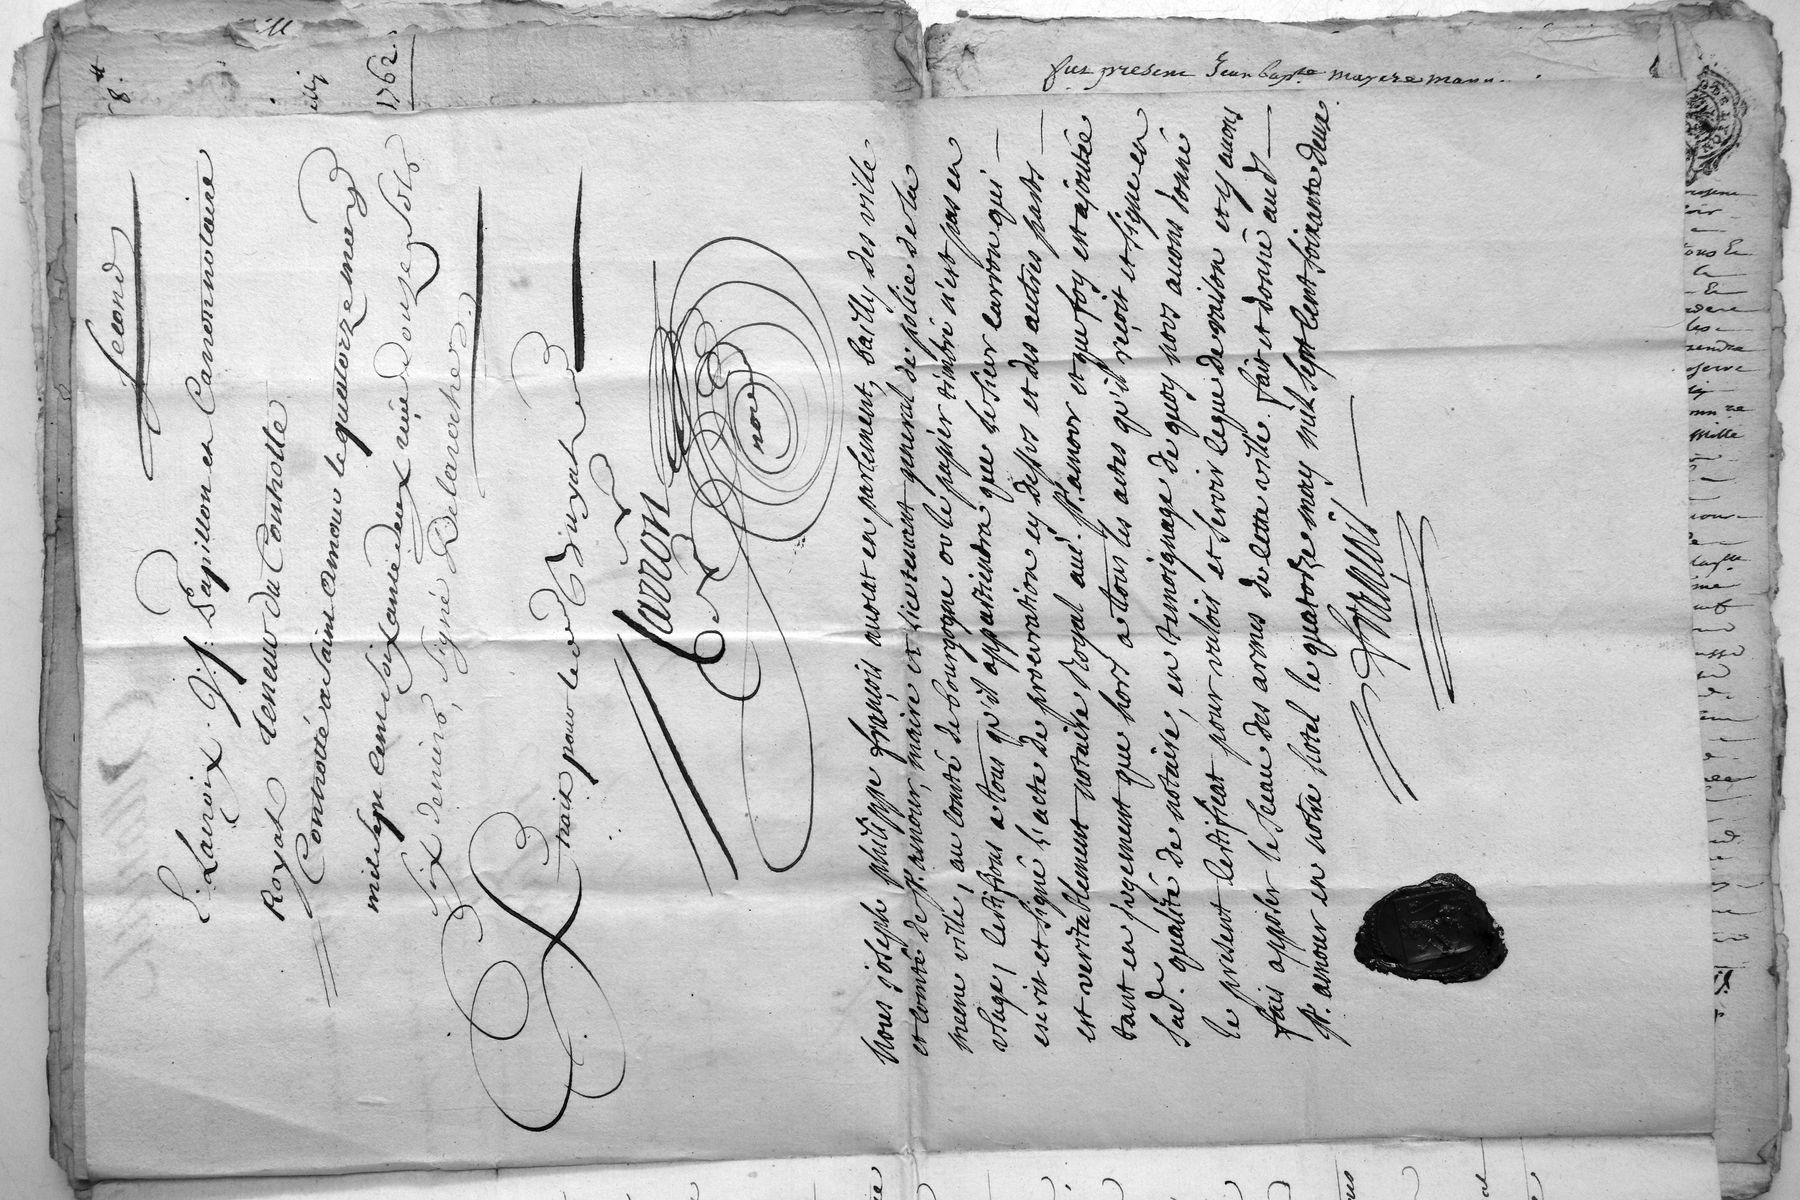 second
E. Lacroix. J. f. Papillon et Carronnotaire
Royal teneur du Controlle
Controllé a saint amour le quatorze mars
mil sept cent soixante deux reçu douze sols
six deniers, signé Delaroche
Extrait pour led Guyat
Carron
nore
Nous joseph philippe françois avocat en parlement, bailly des ville
et comté de st. amour, maire et lieutenant general de police de la
meme ville, au comté de bourgogne ou le papier timbré n'est pas en
usage, certifions a tous qu'il appartiendra que le sieur carron qui
escrit et signé l'acte de procuration cy dessus et des autres parts
est veritablement notaire Royal aud. st. amour et que foy est ajoutée
tant en jugement que hors a tous les actes qu'il reçoit et signe en
sad. qualité de notaire, en temoignage de quoy nous avons donné
le present certificat pour valoir et servir ce que de raison et y avons
fais apposer le sceau des armes de cette ville. fait et donné aud
st. amour en notre hotel le quatorze mars mil sept cent soixante deux
françois
fut present Jean bapte
1762.
8.